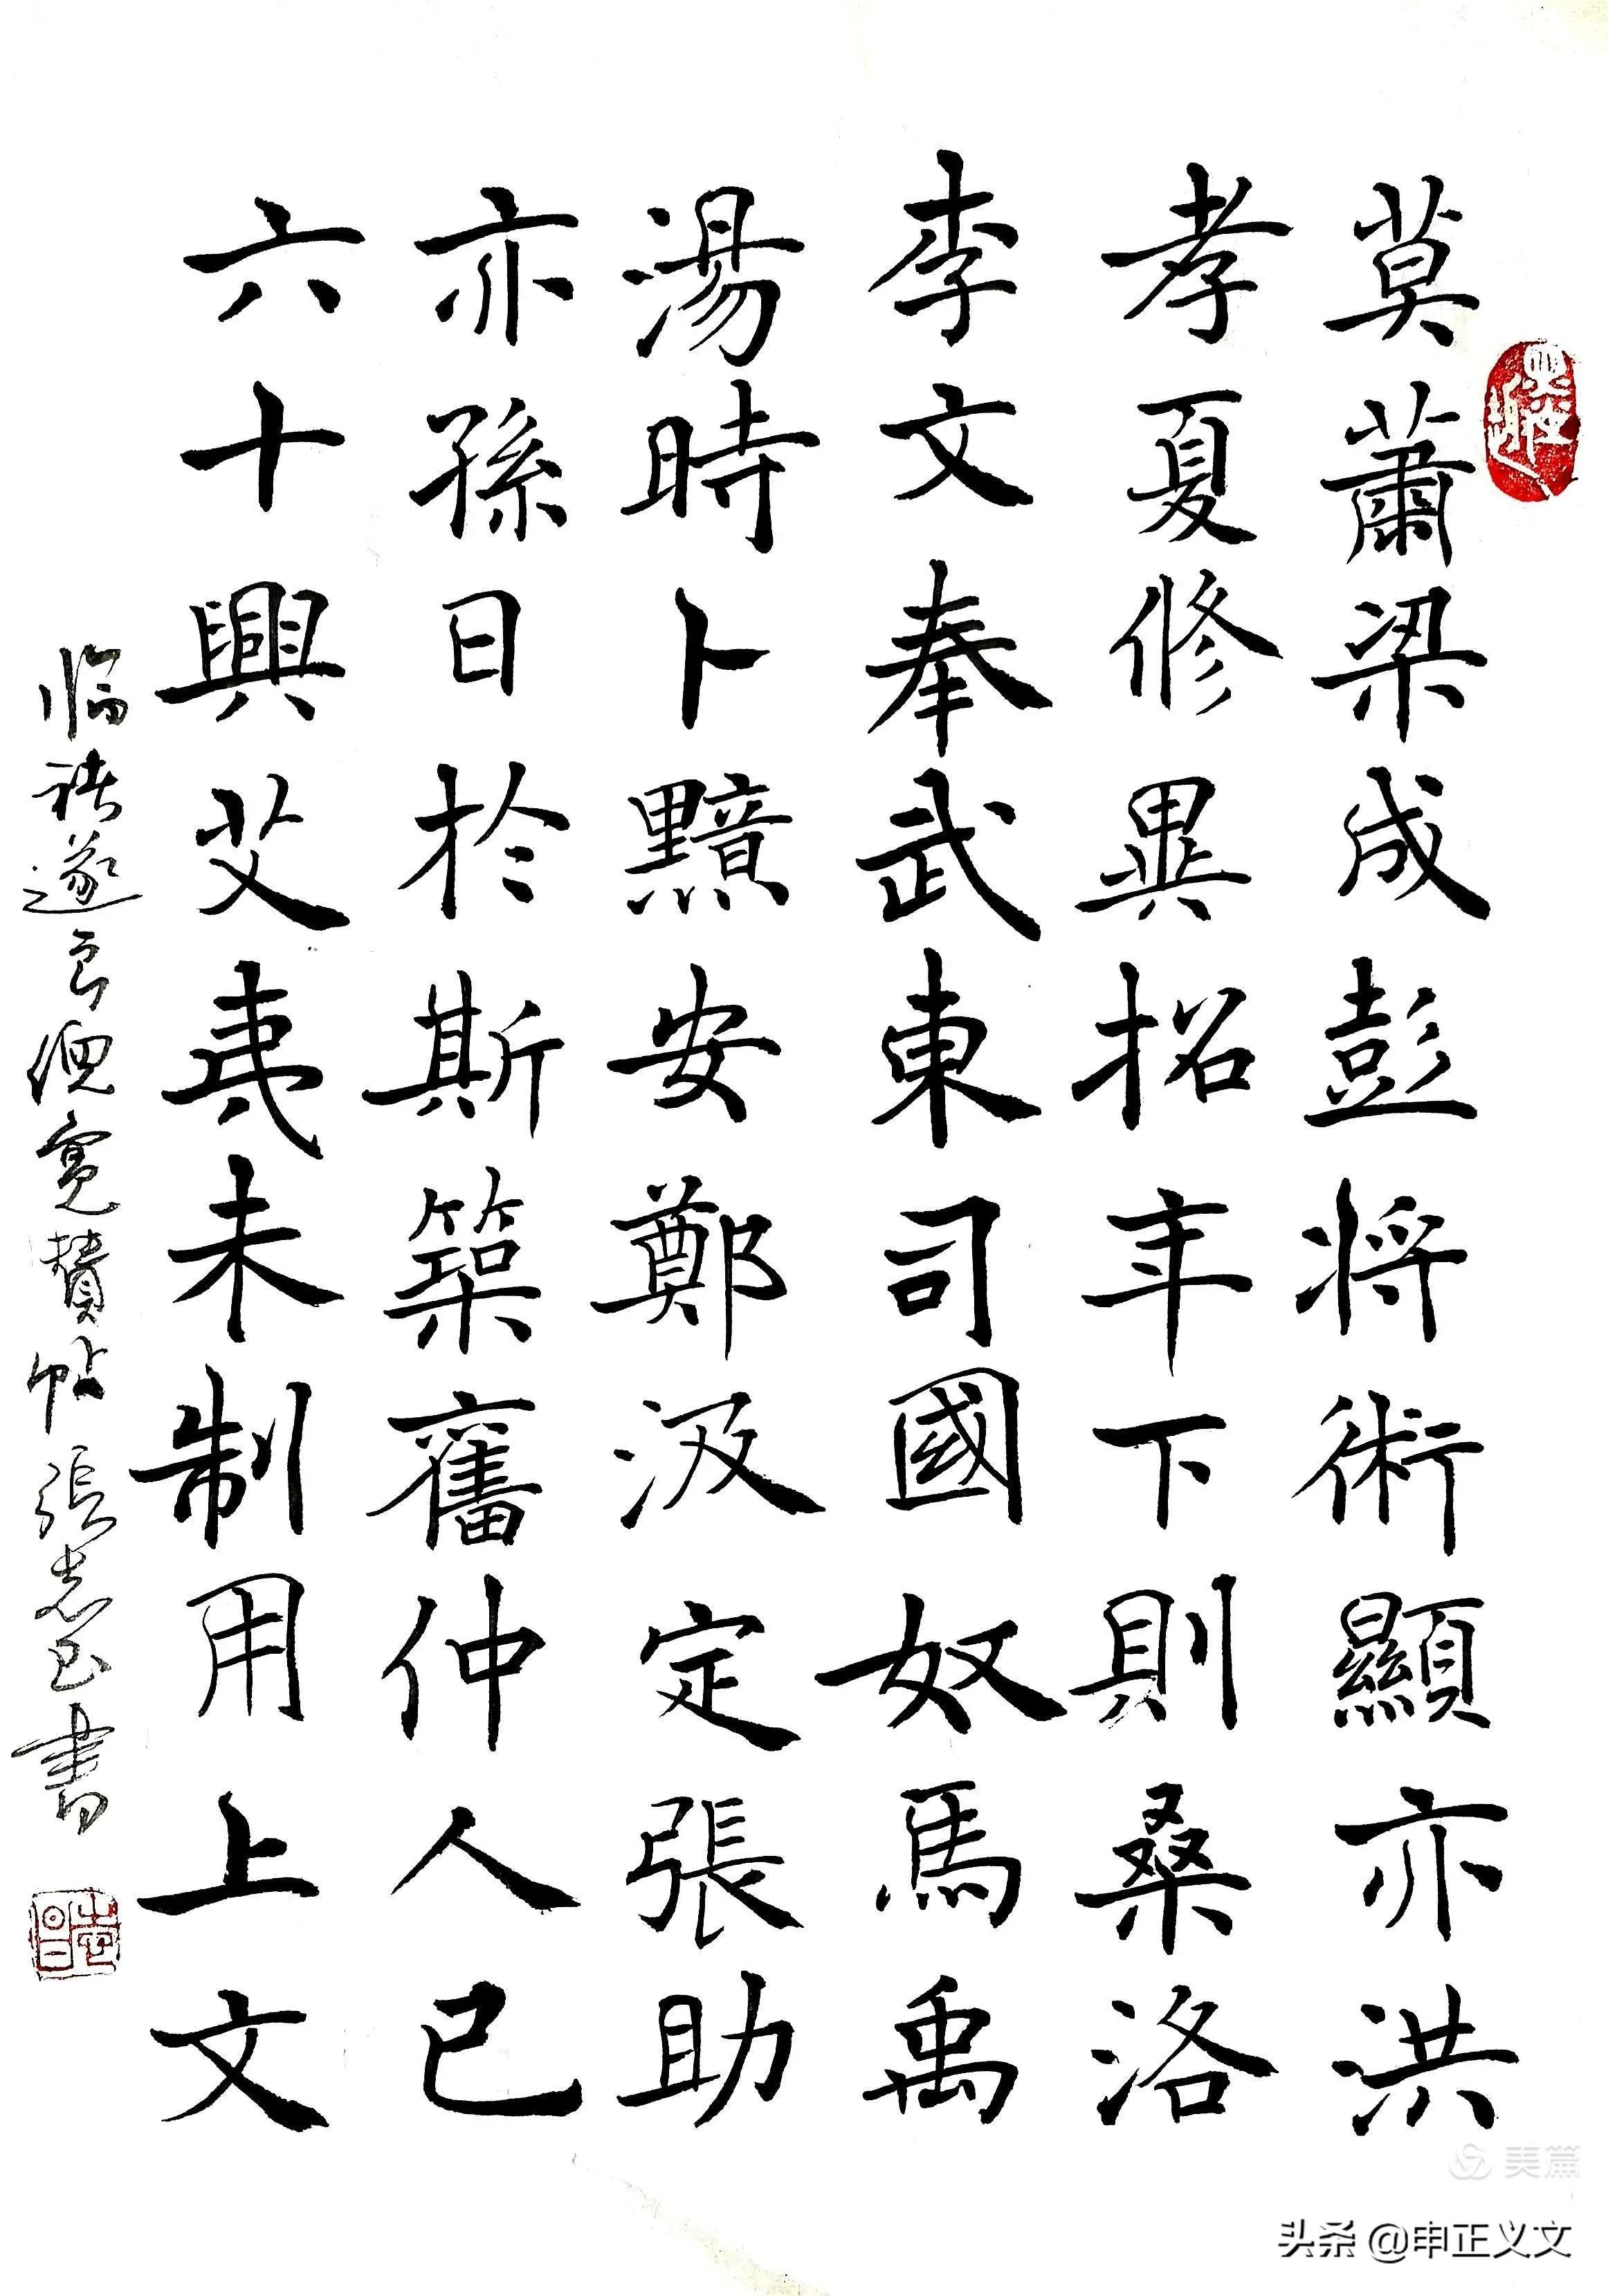 莫蕭梁成彭將術顯亦洪
孝夏修異招年下則桑洛
李文奉武東司國奴馬禹
湯時卜黯安鄭汲定張助
亦孫日於斯築舊仲人已
六十興艾夷未制用上文
临褚遂良倪寬贊帖張志玉書
美篇
头条 @申正义文